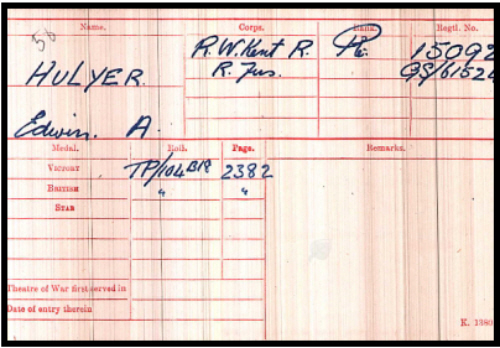 Name. Corps. Rank. Regtl. No.
R.W.Kent R. Pte. 15092
HULYER. R. Fus. GS/61524
Edwin. A.
Medal. Roll. Page. Remarks.
VICTORY TP/104B18 2382
BRITISH " "
STAR
Theatre of War first served in
Date of entry therein
K. 1380